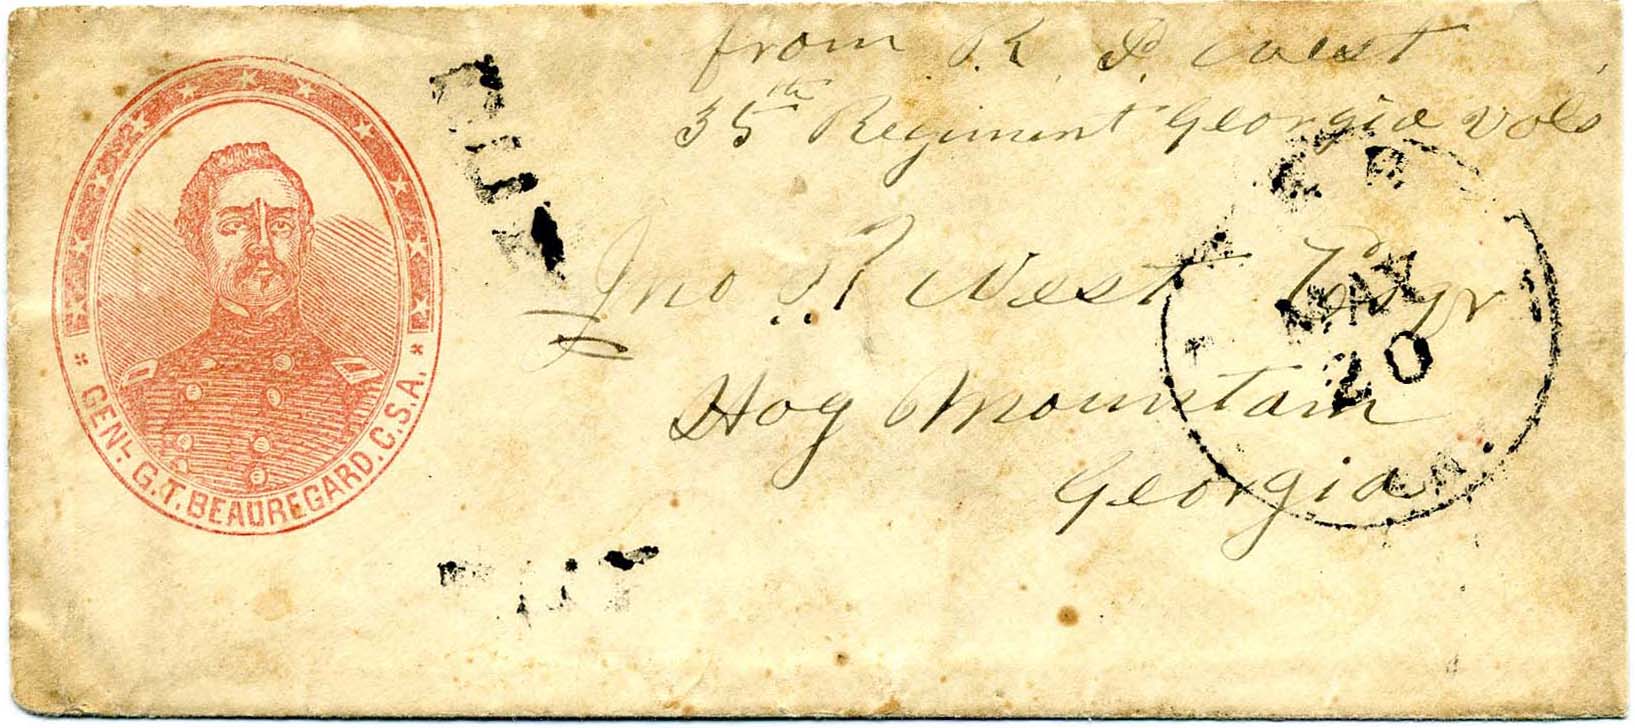 from R. P. West
35th Regiment Georgia Vols
Jno R. West Esqr
Hog Mountain
Georgia
MAY
20
GENL. G.T. BEAUREGARD. C.S.A.